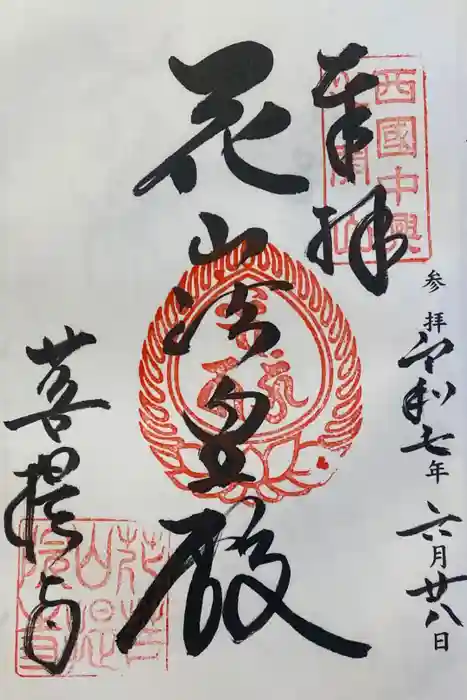 奉拝
西國中興
参拝 令和七年 六月廿八日
花山法皇殿
菩提寺
花山院菩提寺